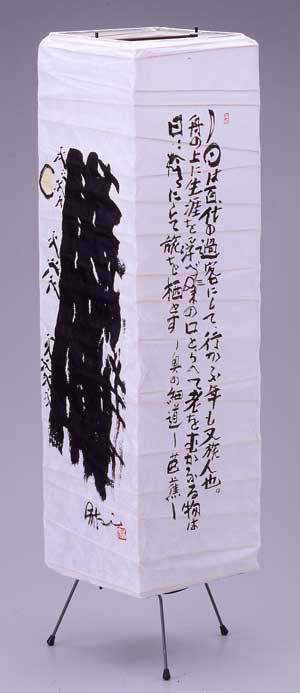 月日は百代の過客にして、行かふ年も又旅人也。
舟の上に生涯を浮べ馬の口とらへて老をむかふる物は
日々旅にして旅を栖とす ー奥の細道ー芭蕉ー